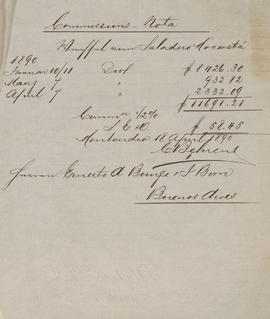 Commissions-Nota
Würffel vom Saladero Mocoretá
1890
Januar 10/11 Divl $ 8426.30
März 7 " 932,82
April 7 " 2332,09
$ 11691.21
Comm 1/2% $ 58.45
S. E. & O.
Montevideo 18 April 1890
C. Behrens
Herren Ernesto A. Bunge & J. Born
Buenos Aires